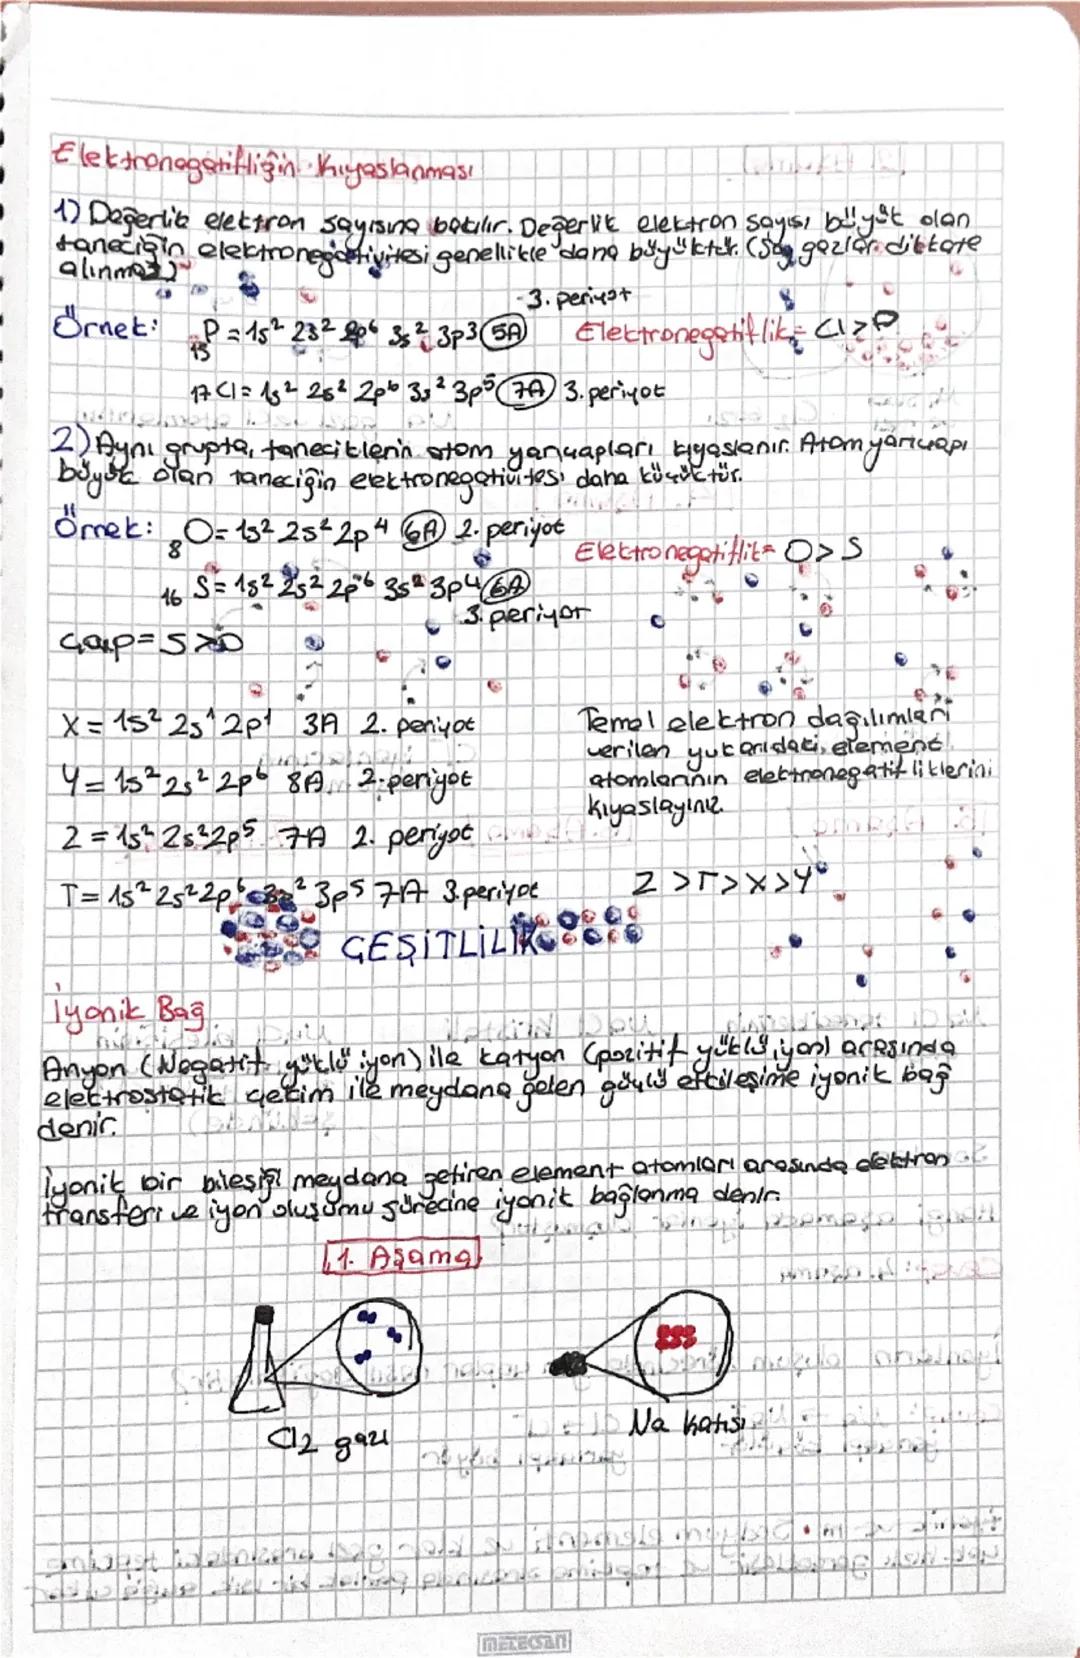 Elektronegatifliğin Kıyaslanması
1) Değerlik elektron sayısına bakılır. Değerlik elektron sayısı büyük olan
taneciğin elektronegativitesi genellikle daha büyüktür. (Soy gazlar dikkate
alınmaz)
3. periyot
Örnek: 15P = 1s² 2s² 2p⁶ 3s² 3p³ 5A Elektronegatiflik = Cl > P
17Cl = 1s² 2s² 2p⁶ 3s² 3p⁵ 7A 3. periyot
2) Aynı grupta, taneciklerin atom yarıçapları kıyaslanır. Atom yarıçapı
büyük olan taneciğin elektronegativitesi daha küçüktür.
Örnek: 8O = 1s² 2s² 2p⁴ 6A 2. periyot
Elektronegatiflik = O > S
16S = 1s² 2s² 2p⁶ 3s² 3p⁴ 6A
3. periyot
Çap = S > O
X = 1s² 2s¹ 2p¹ 3A 2. periyot
Y = 1s² 2s² 2p⁶ 8A 2. periyot
Z = 1s² 2s² 2p⁵ 7A 2. periyot
T = 1s² 2s² 2p⁶ 3s² 3p⁵ 7A 3. periyot
Temel elektron dağılımları
verilen yukarıdaki element
atomlarının elektronegatifliklerini
kıyaslayınız.
Z > T > X > Y
ÇEŞİTLİLİK
İyonik Bağ
Anyon (Negatif yüklü iyon) ile katyon (pozitif yüklü iyon) arasında
elektrostatik çekim ile meydana gelen güçlü etkileşime iyonik bağ
denir.
İyonik bir bileşiği meydana getiren element atomları arasında elektron
transferi ve iyon oluşumu sürecine iyonik bağlanma denir.
1. Aşama
Cl2 gazı
Na katısı
METEKSAN